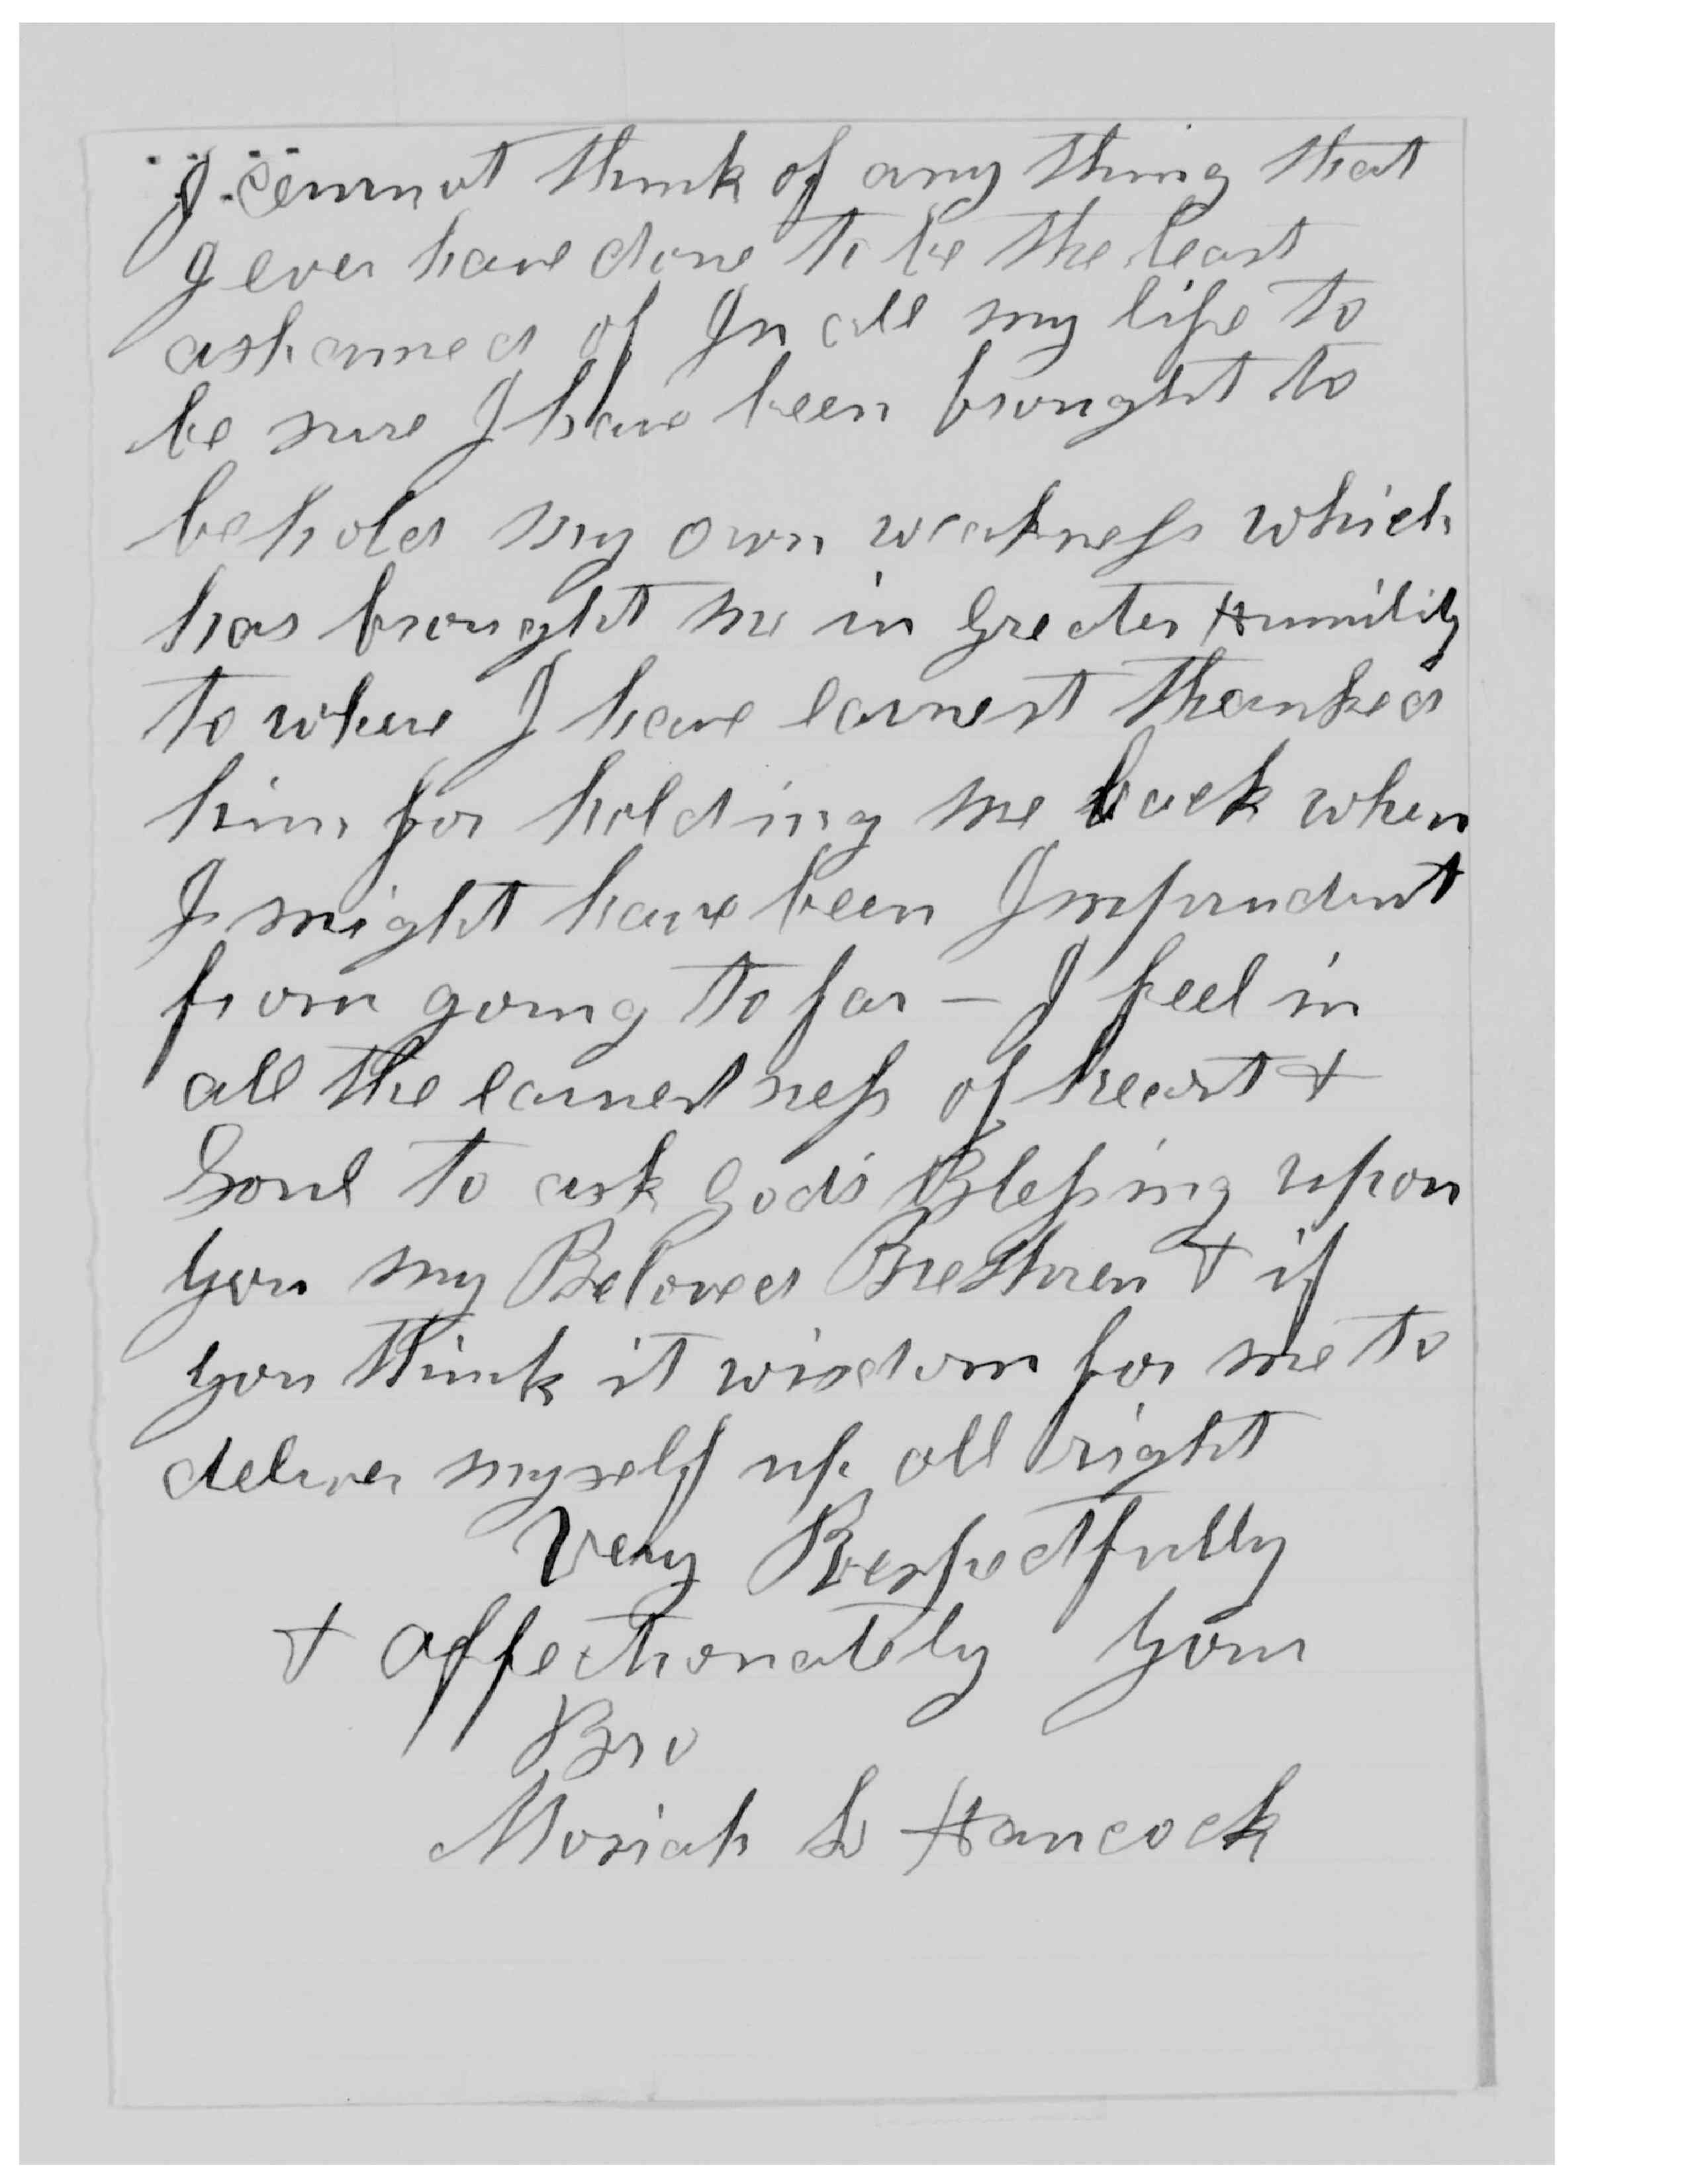 I cannot think of any thing that
I ever have done to be the least
ashamed of In all my life to
be sure I have been brought to
behold my own weakness which
has brought me in Greater Humility
to where I have earnest thanked
him for holding me back when
I might have been Imprudent
from going to far — I feel in
all the earnestness of heart &
Soul to ask God's Blessing upon
you my Beloved Brethren & if
you think it wisdom for me to
deliver myself up all right
Very Respectfully
& affectionately your
Bro
Mosiah L Hancock